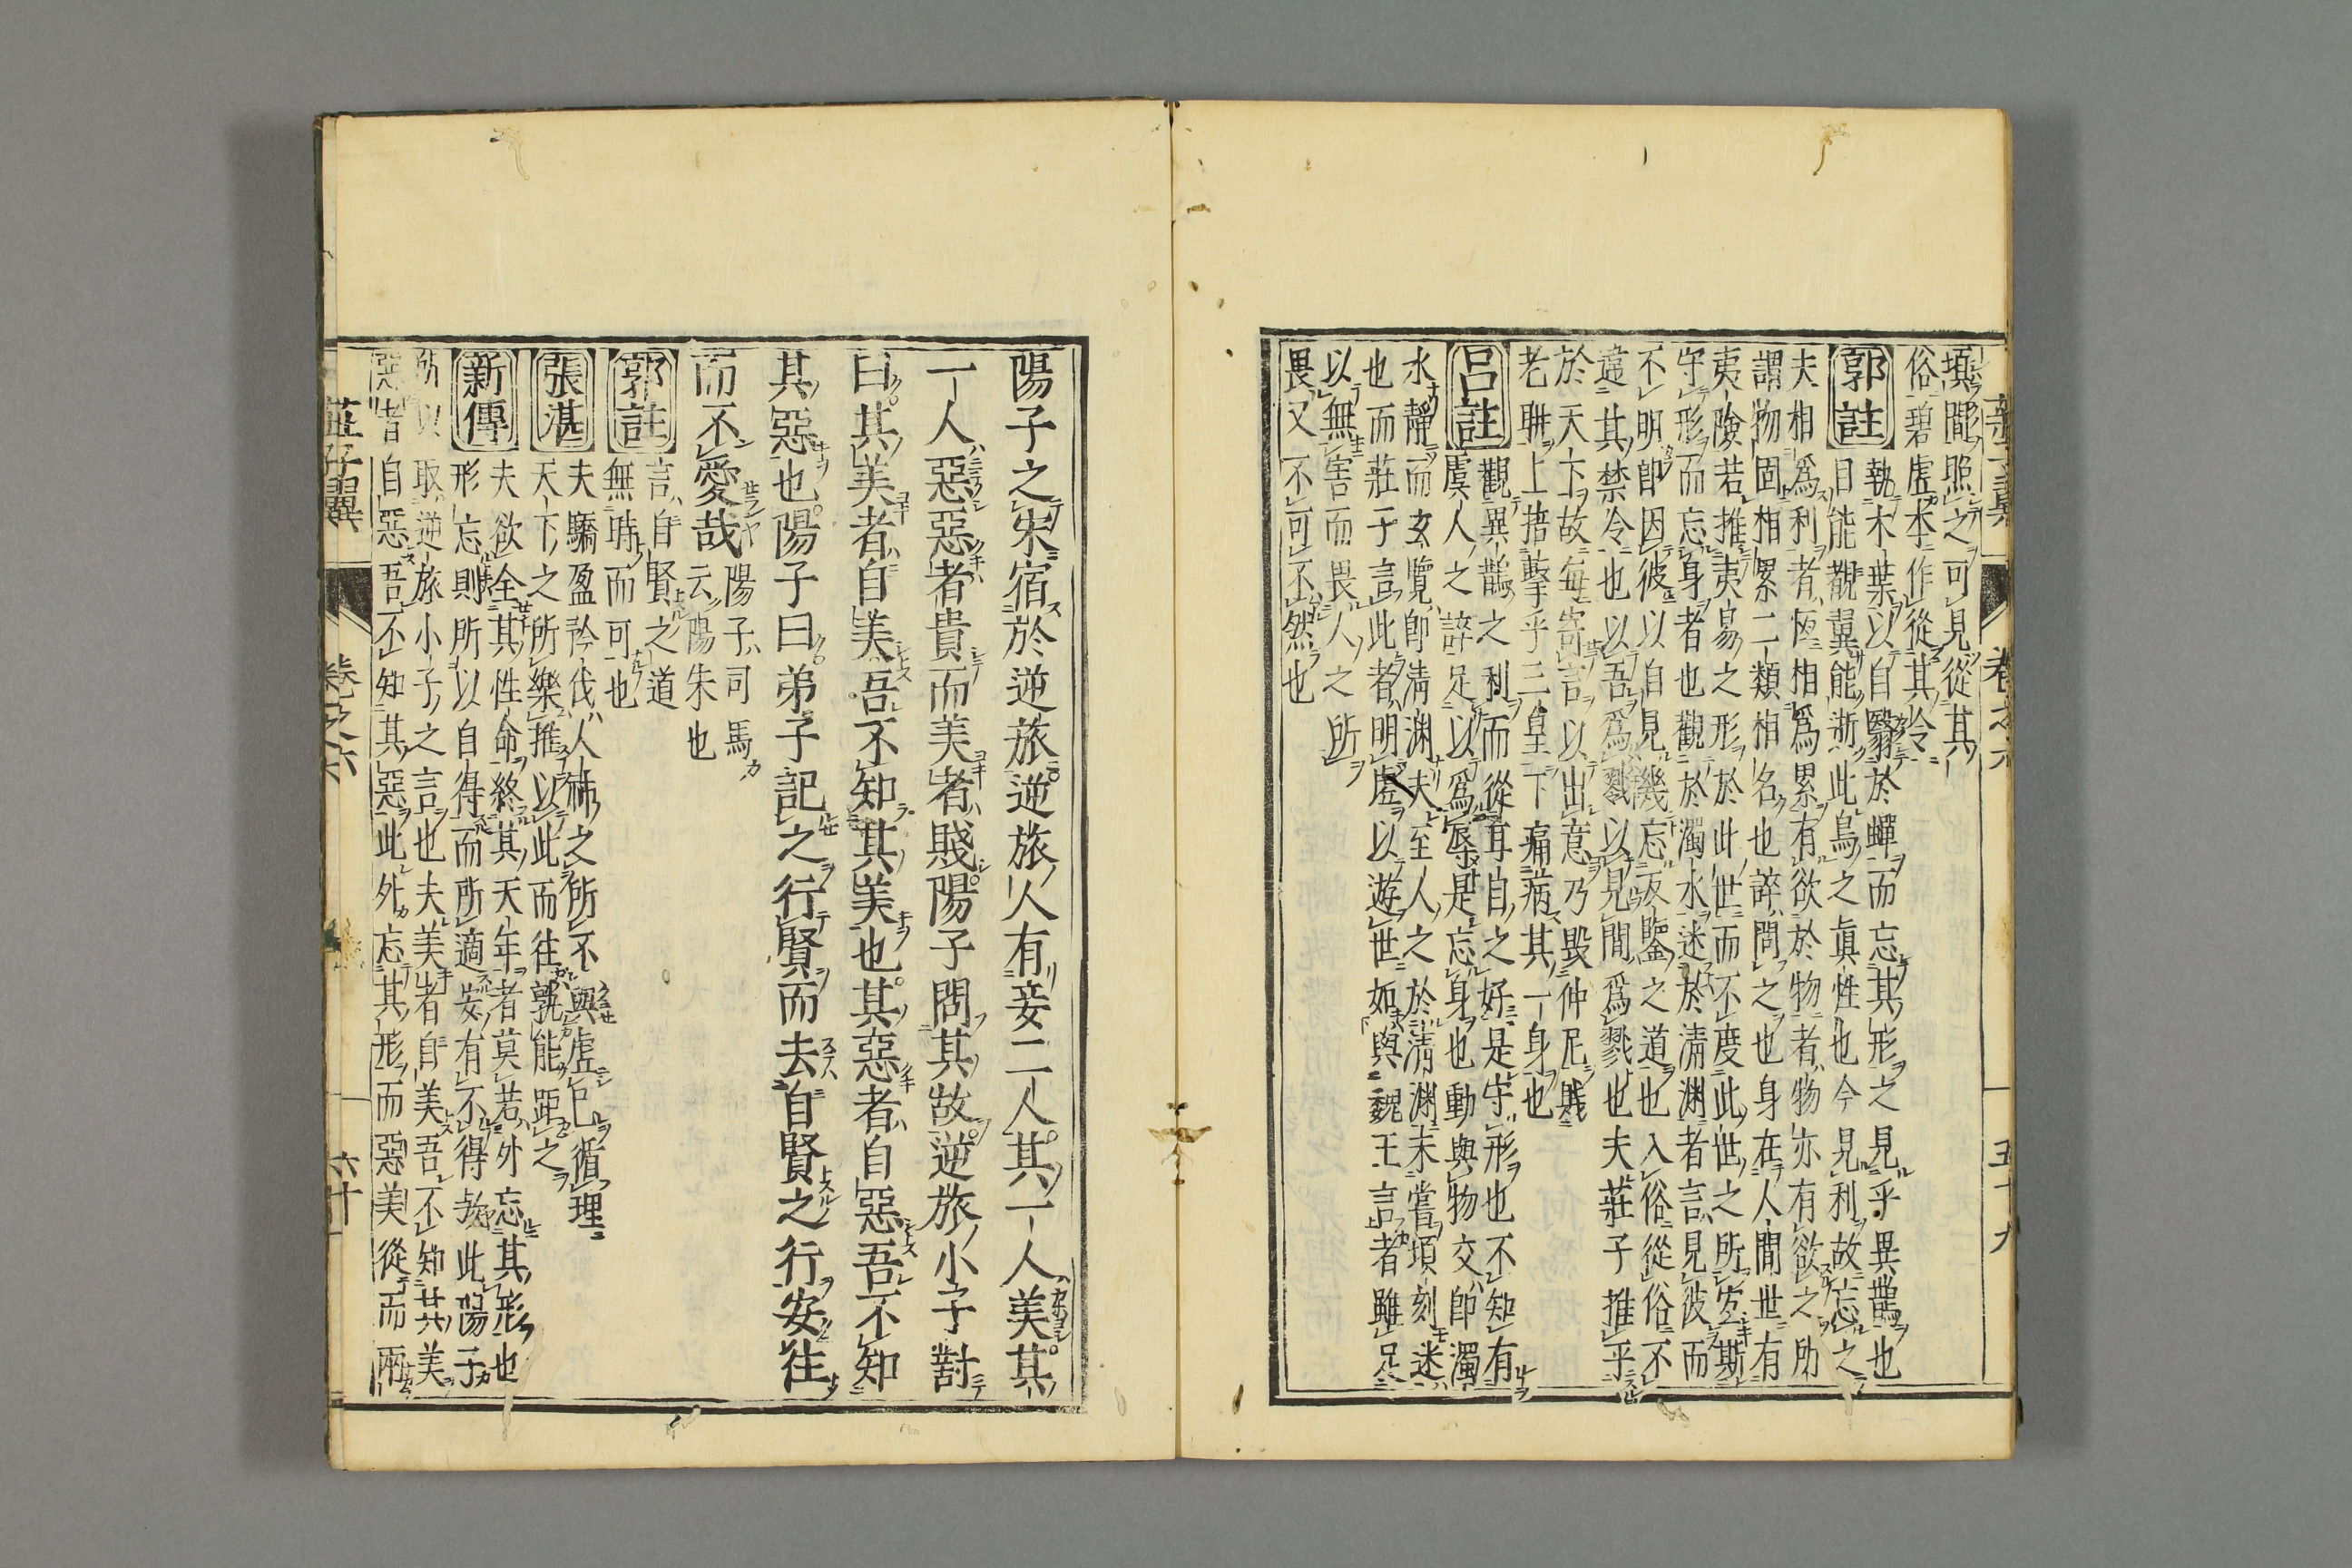 莊子翼 卷之六 五十九
填間照之可見從其
俗碧虛本作從其令
郭註
執木葉以自翳於蟬而忘其形之見乎異鵲也
目能覩翼能逝此鳥之眞性也今見利故忘之
夫相爲利者恆相爲累有欲於物者物亦有欲之所
謂物固相累二類相名也誶問之也身在人間世有
夷險若推夷易之形於此世而不度此世之所宜斯
守形而忘身者也觀於濁水迷於淸淵者言見彼而
不明卽因彼以自見幾忘反鑒之道也入俗從俗不
違其禁令也以吾爲戮以見問爲戮也夫莊子推平
於天下故每寄言以出意乃毀仲尼賤
老耼上掊擊乎三皇下痛病其一身也
呂註
觀異鵲之利而從耳自之好是守形也不知有
虞人之誶足以爲辱是忘身也動與物交卽濁
水靜而玄覽卽淸淵夫至人之於淸淵未嘗頃刻迷
也而莊子言此者明虛以遊世如與魏王言者雖足
以無害而畏人之所
畏又不可不然也
陽子之宋宿於逆旅逆旅人有妾二人其一人美其
一人惡惡者貴而美者賤陽子問其故逆旅小子對
曰其美者自美吾不知其美也其惡者自惡吾不知
其惡也陽子曰弟子記之行賢而去自賢之行安往
而不愛哉
陽子司馬
云陽朱也
郭註
言自賢之道
無時而可也
張湛
夫驕盈矜伐人神之所不與虛己循理
天下之所樂推以此而往孰能距之
新傳
夫欲全其性命終其天年者莫若外忘其形也
形忘則所以自得而所適安有不得哉此陽子
所以取逆旅小子之言也夫美者自美吾不知其美
惡者自惡吾不知其惡此外忘其形而惡美從而兩
莊子翼 卷之六 六十